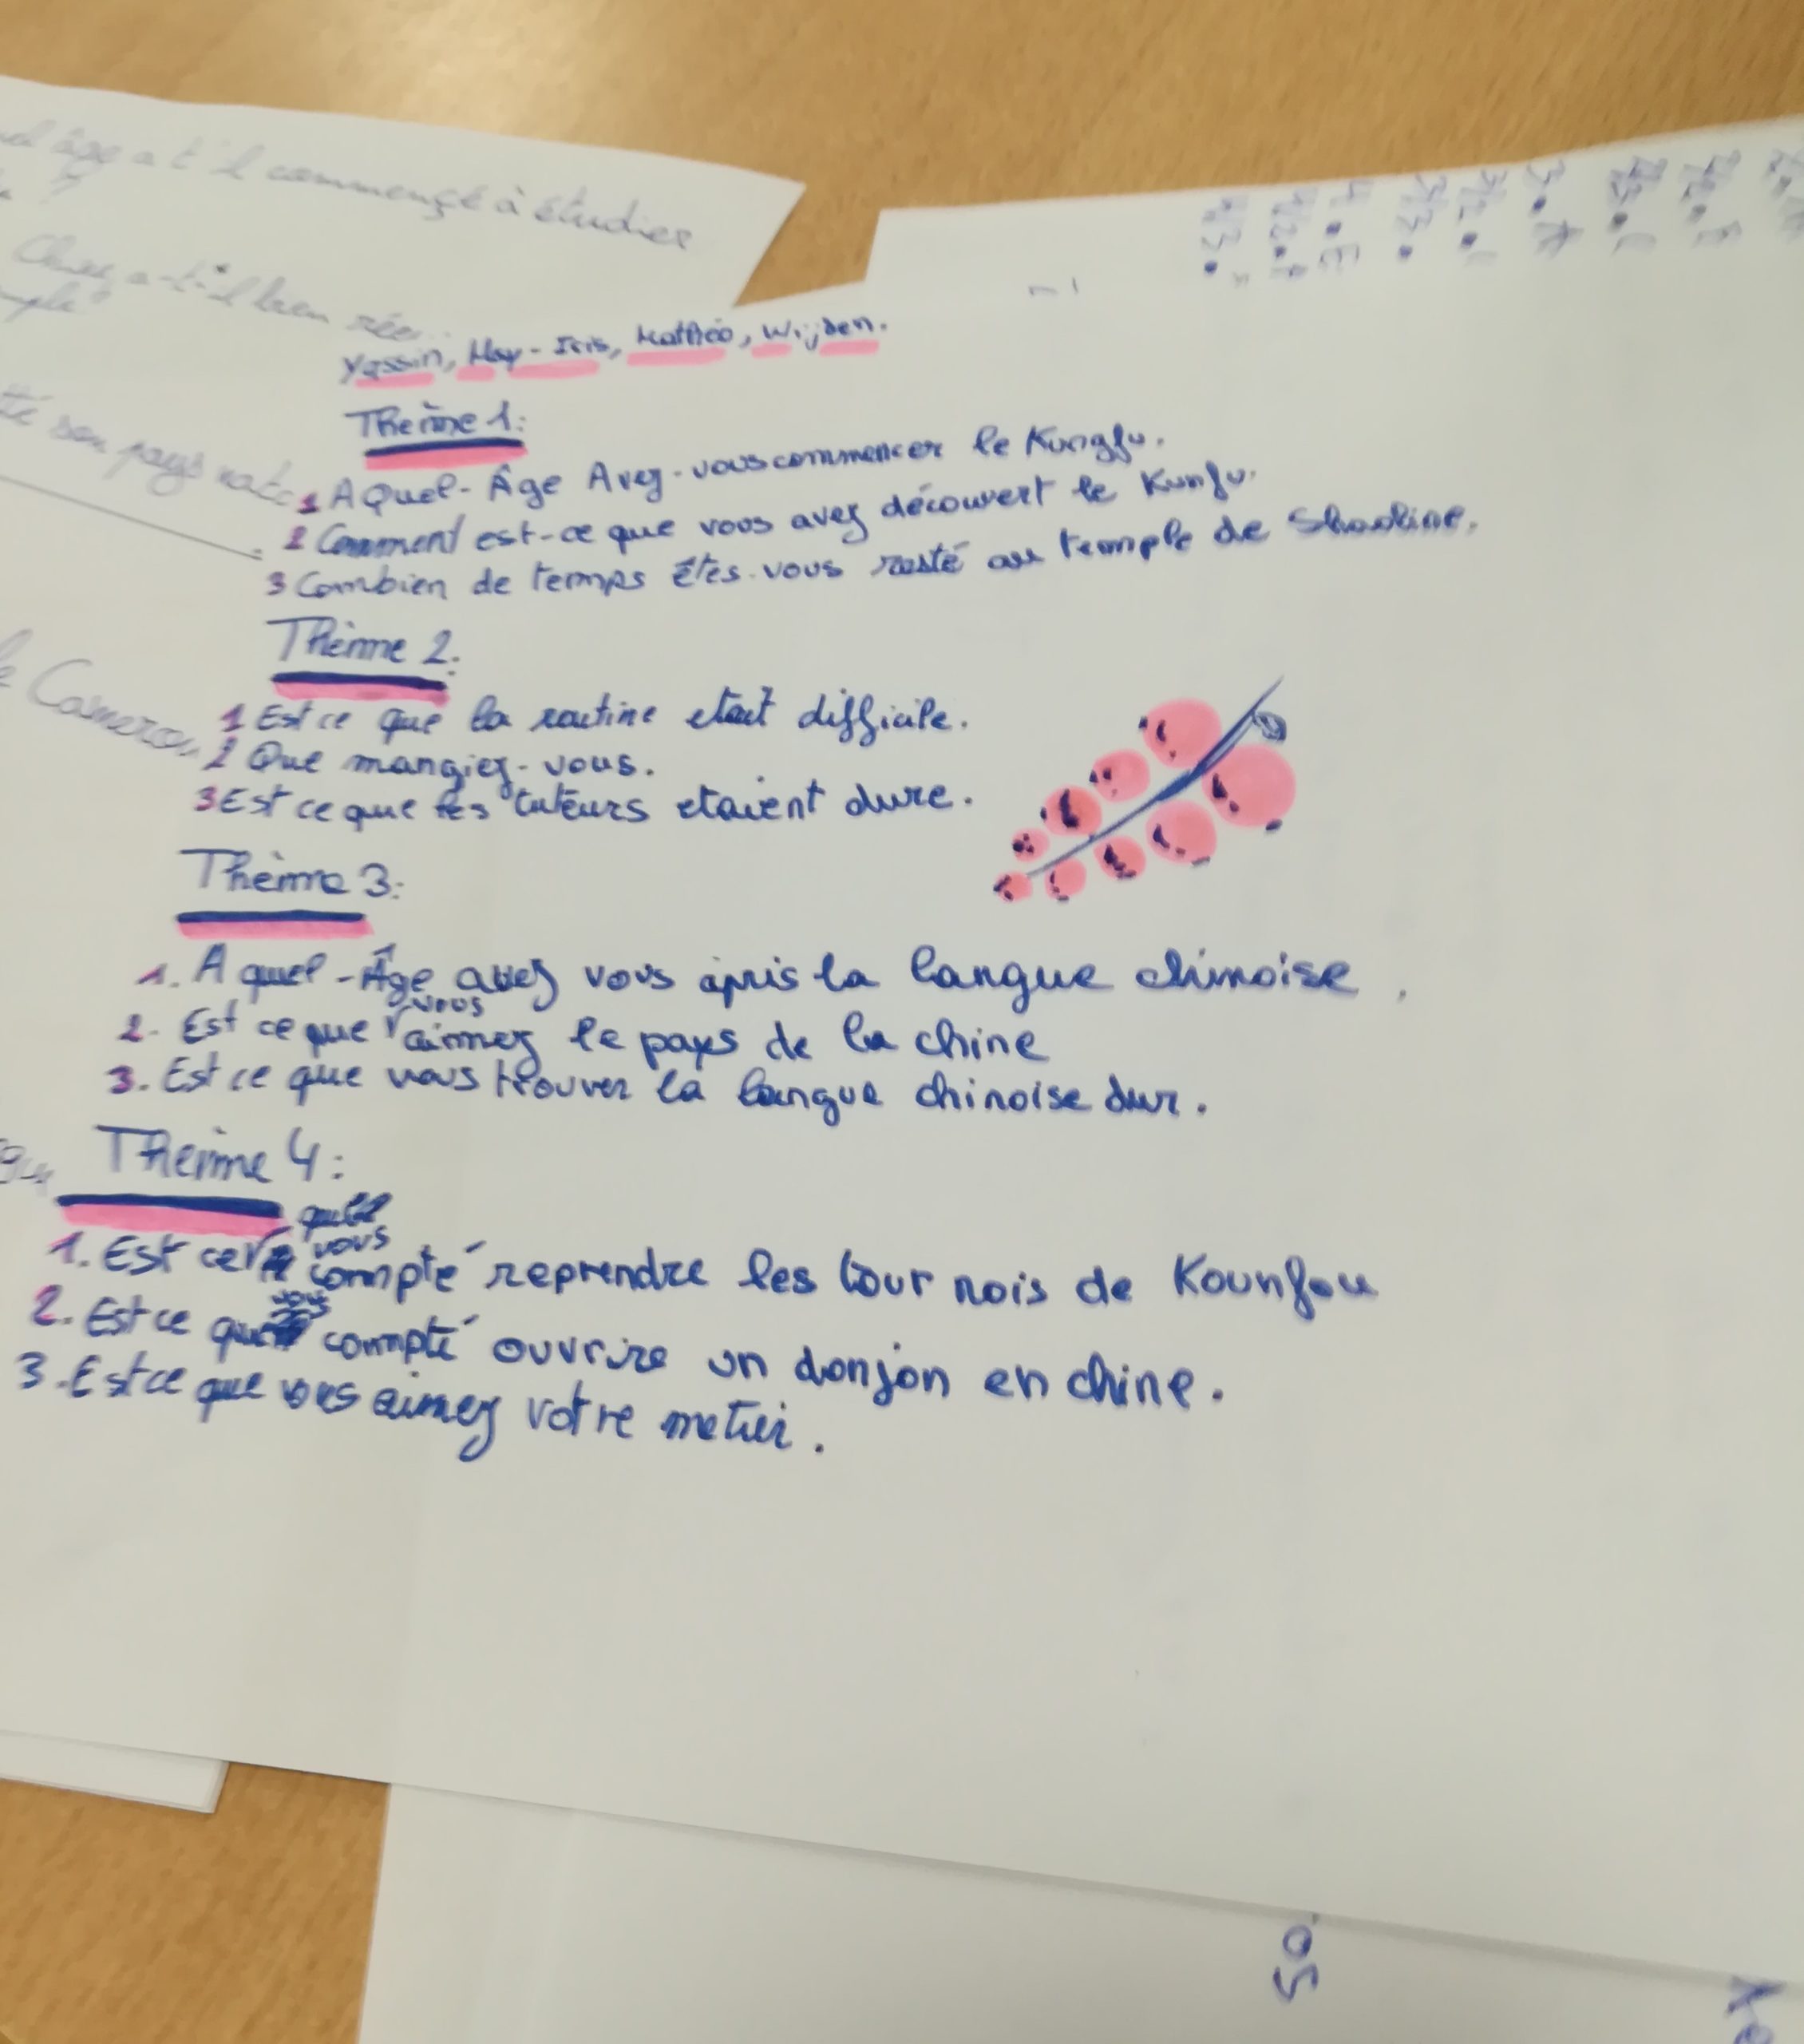 âge a t'il commençé à étudier
?
a-t-il bien
son pays
Yassin, May-Iris, Mathéo, Wijden.
Thème 1:
1 A Quel-Âge Avez-vous commencer le Kungfu.
2 Comment est-ce que vous avez découvert le Kunfu.
3 Combien de temps êtes-vous resté au temple de Shaoline.
Thème 2:
1 Est ce que la routine etait difficile.
2 Que mangiez-vous.
3 Est ce que les tuteurs etaient dure.
Thème 3:
1. A quel-Âge avez vous apris la langue chinoise.
2. Est ce que vous aimez le pays de la chine
3. Est ce que vous trouver la langue chinoise dur.
Thème 4:
1. Est ce que vous compté reprendre les tournois de Kounfou
2. Est ce que vous compté ouvrire un donjon en chine.
3. Est ce que vous aimez votre metier.